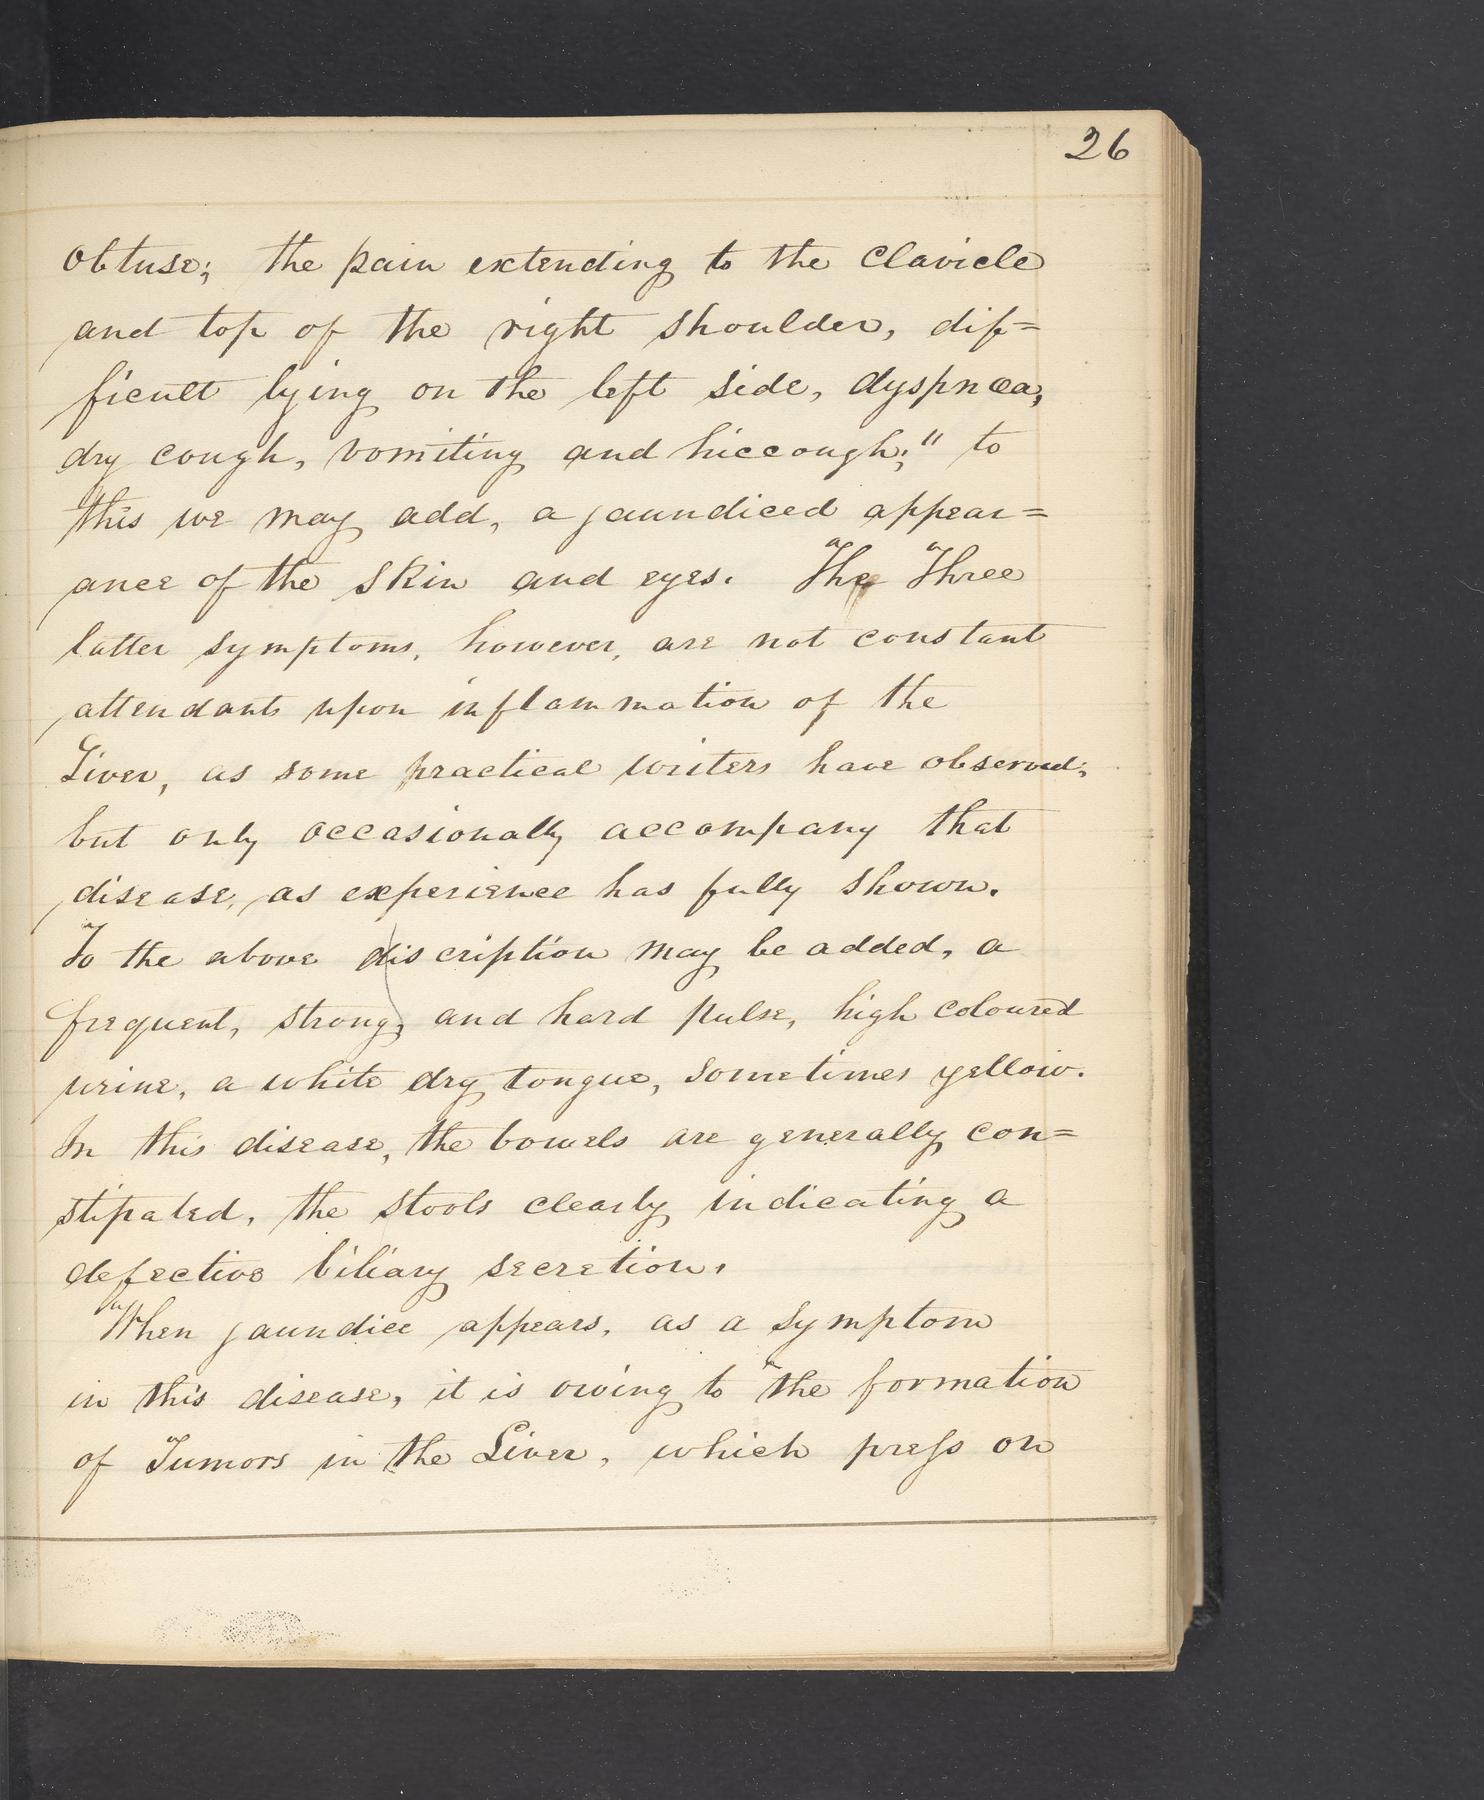 26
obtuse; the pain extending to the clavicle
and top of the right shoulder, dif=
ficult lying on the left side, dyspnœa,
dry cough, vomiting and hiccough;" to
this we may add, a jaundiced appear=
ance of the skin and eyes. The Three
latter symptoms, however, are not constant
attendants upon inflammation of the
Liver, as some practical writers have observed;
but only occasionally accompany that
disease, as experience has fully shown.
To the above discription may be added, a
frequent, strong, and hard pulse, high coloured
urine, a white dry tongue, sometimes yellow.
In this disease, the bowels are generally con=
stipated, the stools clearly indicating a
defective biliary secretion.
When jaundice appears, as a symptom
in this disease, it is owing to the formation
of Tumors in the Liver, which press on